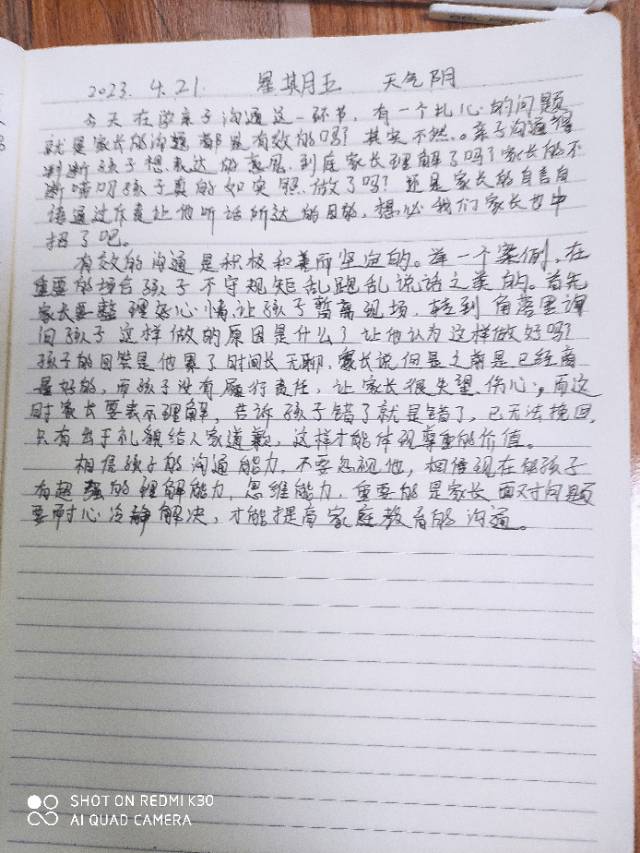 2023. 4.21. 星期五 天气阴
今天在学亲子沟通这一环节, 有一个扎心的问题
就是家长的沟通都是有效的吗? 其实不然。亲子沟通得
判断孩子想表达的意思, 到底家长理解了吗? 家长的不
断嘱咐孩子真的如实照做了吗? 还是家长的自言自
语通过斥责让他听话所达的目的, 想必我们家长也中
招了吧。
有效的沟通是积极和善而坚定的。举一个案例, 在
重要的场合孩子不守规矩乱跑乱说话之类的。首先
家长要整理好心情, 让孩子暂离现场, 转到角落里询
问孩子这样做的原因是什么? 让他认为这样做好吗?
孩子的回答是他累了时间长无聊, 家长说但是之前是已经商
量好的, 而孩子没有履行责任, 让家长很失望、伤心, 而这
时家长要表示理解, 告诉孩子错了就是错了, 已无法挽回,
只有出于礼貌给人家道歉, 这样才能体现尊重的价值。
相信孩子的沟通能力, 不要忽视他, 相信现在的孩子
有超强的理解能力, 思维能力, 重要的是家长面对问题
要耐心冷静解决, 才能提高家庭教育的沟通。
SHOT ON REDMI K30
AI QUAD CAMERA